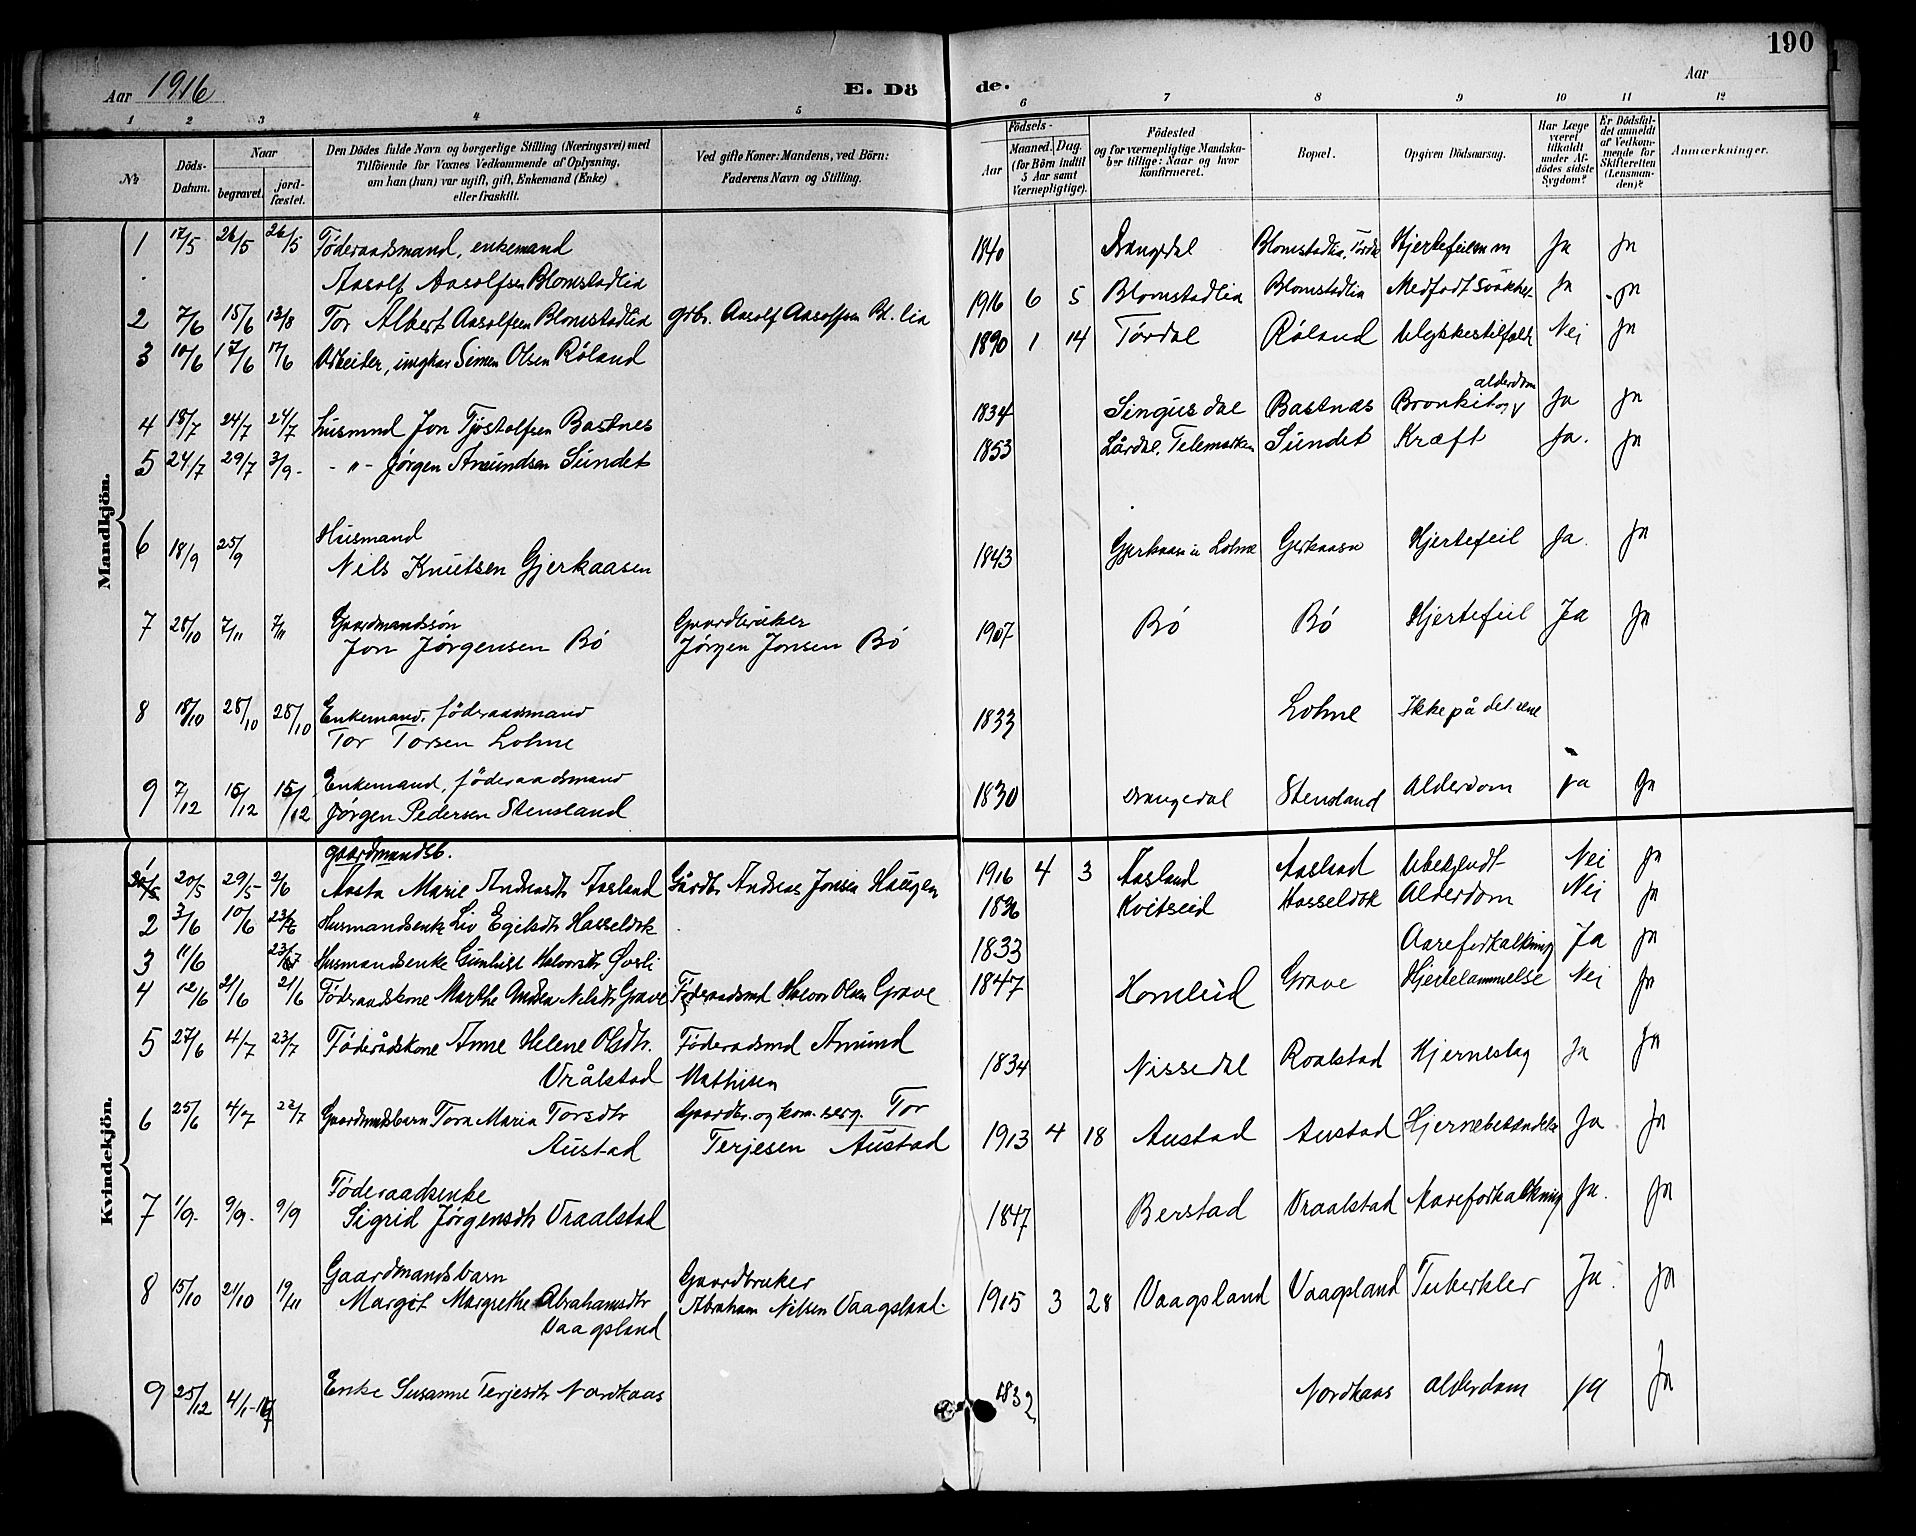 190
Aar 1916
E. Dö
de.
Aar
1 2 3 4 5 6 7 8 9 10 11 12
№
Döds-Datum.
Naar
begravet.
jord-fæstet.
Den Dödes fulde Navn og borgerlige Stilling (Næringsvei) med
Tilföiende for Voxnes Vedkommende af Oplysning,
om han (hun) var ugift, gift, Enkemand (Enke)
eller fraskilt.
Ved gifte Koner: Mandens, ved Börn:
Faderens Navn og Stilling.
Födsels-
Aar
Maaned. Dag.
(for Börn indtil
5 Aar samt
Værnepligtige).
Födested
og for værnepligtige Mandska-
ber tillige: Naar og hvor
konfirmeret.
Bopæl.
Opgiven Dödsaarsag.
Har Læge
været
tilkaldt
under Af-
dödes sidste
Sygdom?
Er Dödsfal-
det anmeldt
af Vedkom-
mende for
Skifteretten
(Lensman-
den)?
Anmærkninger.
Mandkjön.
1 17/5 26/5 26/5 Föderaadsmand, enkemand 1840 Drangedal Blomstadlia, Tørdal Hjertefeil Ja Ja
Aasolf Aasolfsen Blomstadlia
2 7/6 15/6 13/8 Tor Albert Aasolfsen Blomstadlia grbr. Aasolf Aasolfsen Bl. lia 1916 6 5 Blomstadlia Blomstadlia Medfødt Svakhet Ja Ja
3 10/6 17/6 17/6 Arbeider, ungkar Simen Olsen Røland 1890 1 14 Tørdal Røland Ulykkestilfælde Nei Ja
4 18/7 24/7 24/7 Husmnd Jon Tjøstolfsen Bastnes 1834 Singusdal Bastnæs Bronkit og alderdom Ja Ja
5 24/7 29/7 3/9 - " - Jørgen Amundsen Sundet 1853 Lårdal, Telemarken Sundet Kræft Ja. Ja
6 18/9 25/9 Husmand
Nils Knutsen Gjerkaasen 1843 Gjerkaasen Lohne Gjerkaasen Hjertefeil Ja. Ja
7 28/10 7/11 7/11 Gaardmandssøn Gaardbruker
Jon Jørgensen Bó Jørgen Jonsen Bó 1907 Bó Bó Hjertefeil Ja Ja
8 18/10 28/10 28/10 Enkemand, föderaadsmand
Tor Torsen Lohne 1833 Lohne Ikke på det rene
9 7/12 15/12 15/12 Enkemand, föderaadsmand
Jørgen Pedersen Stensland 1830 Drangedal Stensland Alderdom Ja Ja
Kvindekjön.
1 20/5 29/5 2/6 gaardmandsb.
Aasta Marie Andreasdtr Aasland Gårdbr Andreas Jonsen Haugen 1916 4 3 Aasland Aasland Ubekjendt Nei Ja
2 3/6 10/6 Husmandsenke Liv Egilsdtr Hasseldok 1836 Kvitseid Hasseldok Alderdom Nei Ja
3 11/6 Husmandsenke Gunhild Halvorsdtr Øvsli 1833 Aareforkalkning Ja Ja
4 12/6 21/6 21/6 Föderaadskone Marthe Andrea Nilsdtr Grave Föderaadsmd Halvor Olsen Grave 1847 Homleid Grave Hjertelammelse Nei Ja
5 27/6 4/7 23/7 Föderådskone Anne Helene Olsdtr. Föderadsmd Amund
Vrålstad Mathisen 1834 Nissedal Roalstad Hjerneslag Ja Ja
6 25/6 4/7 22/7 Gaardmdsbarn Tora Maria Torsdtr Gaardbr. og kom. serg. Tor
Austad Terjesen Austad 1913 4 18 Austad Austad Hjernebetændelse Ja Ja
7 1/9 9/9 9/9 Föderaadsenke
Sigrid Jørgensdtr Vraalstad 1847 Berstad Vraalstad Aareforkalkning Ja. Ja
8 15/10 21/10 19/11 Gaardmandsbarn Gaardbruker
Margit Margrethe Abrahamsdtr Abraham Nilsen Vaagsland. 1915 3 28 Vaagsland Vaagsland Tuberkler Ja Ja
Vaagsland
9 25/12 4/1-17 Enke Susanne Terjesdtr Nordkaas 1832 Nordkaas alderdom ja Ja